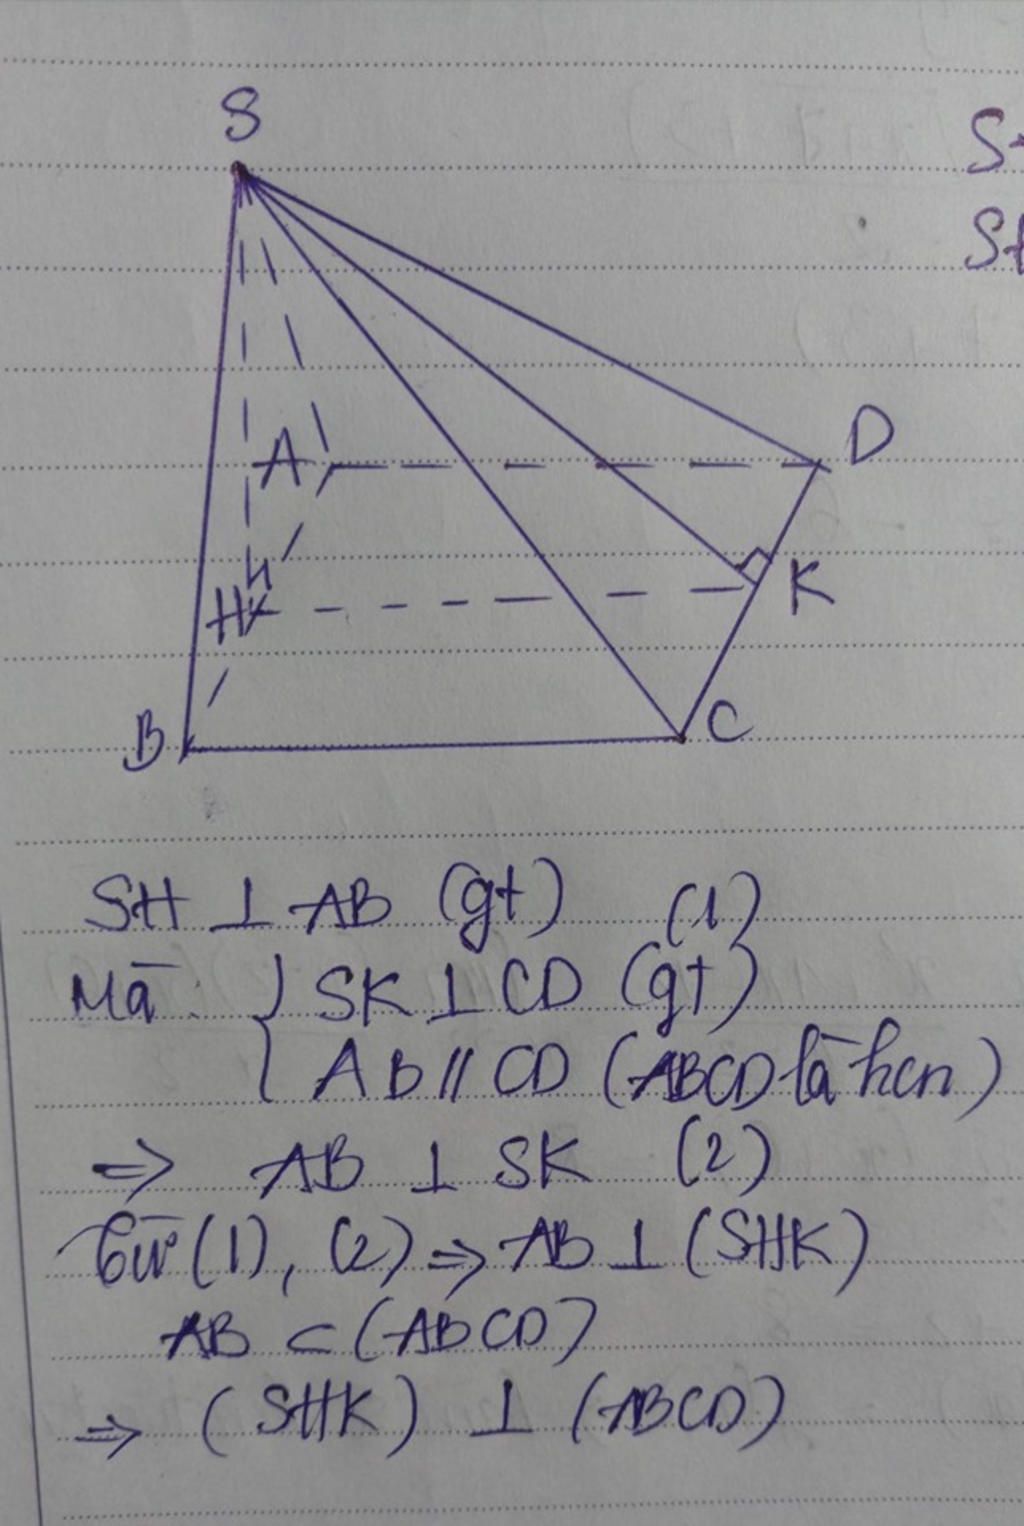 S
S
S
A
D
H
K
B
C
SH ⊥ AB (gt) (1)
Mà: { SK ⊥ CD (gt)
AB // CD (ABCD là hcn)
=> AB ⊥ SK (2)
Từ (1), (2) => AB ⊥ (SHK)
AB ⊂ (ABCD)
=> (SHK) ⊥ (ABCD)